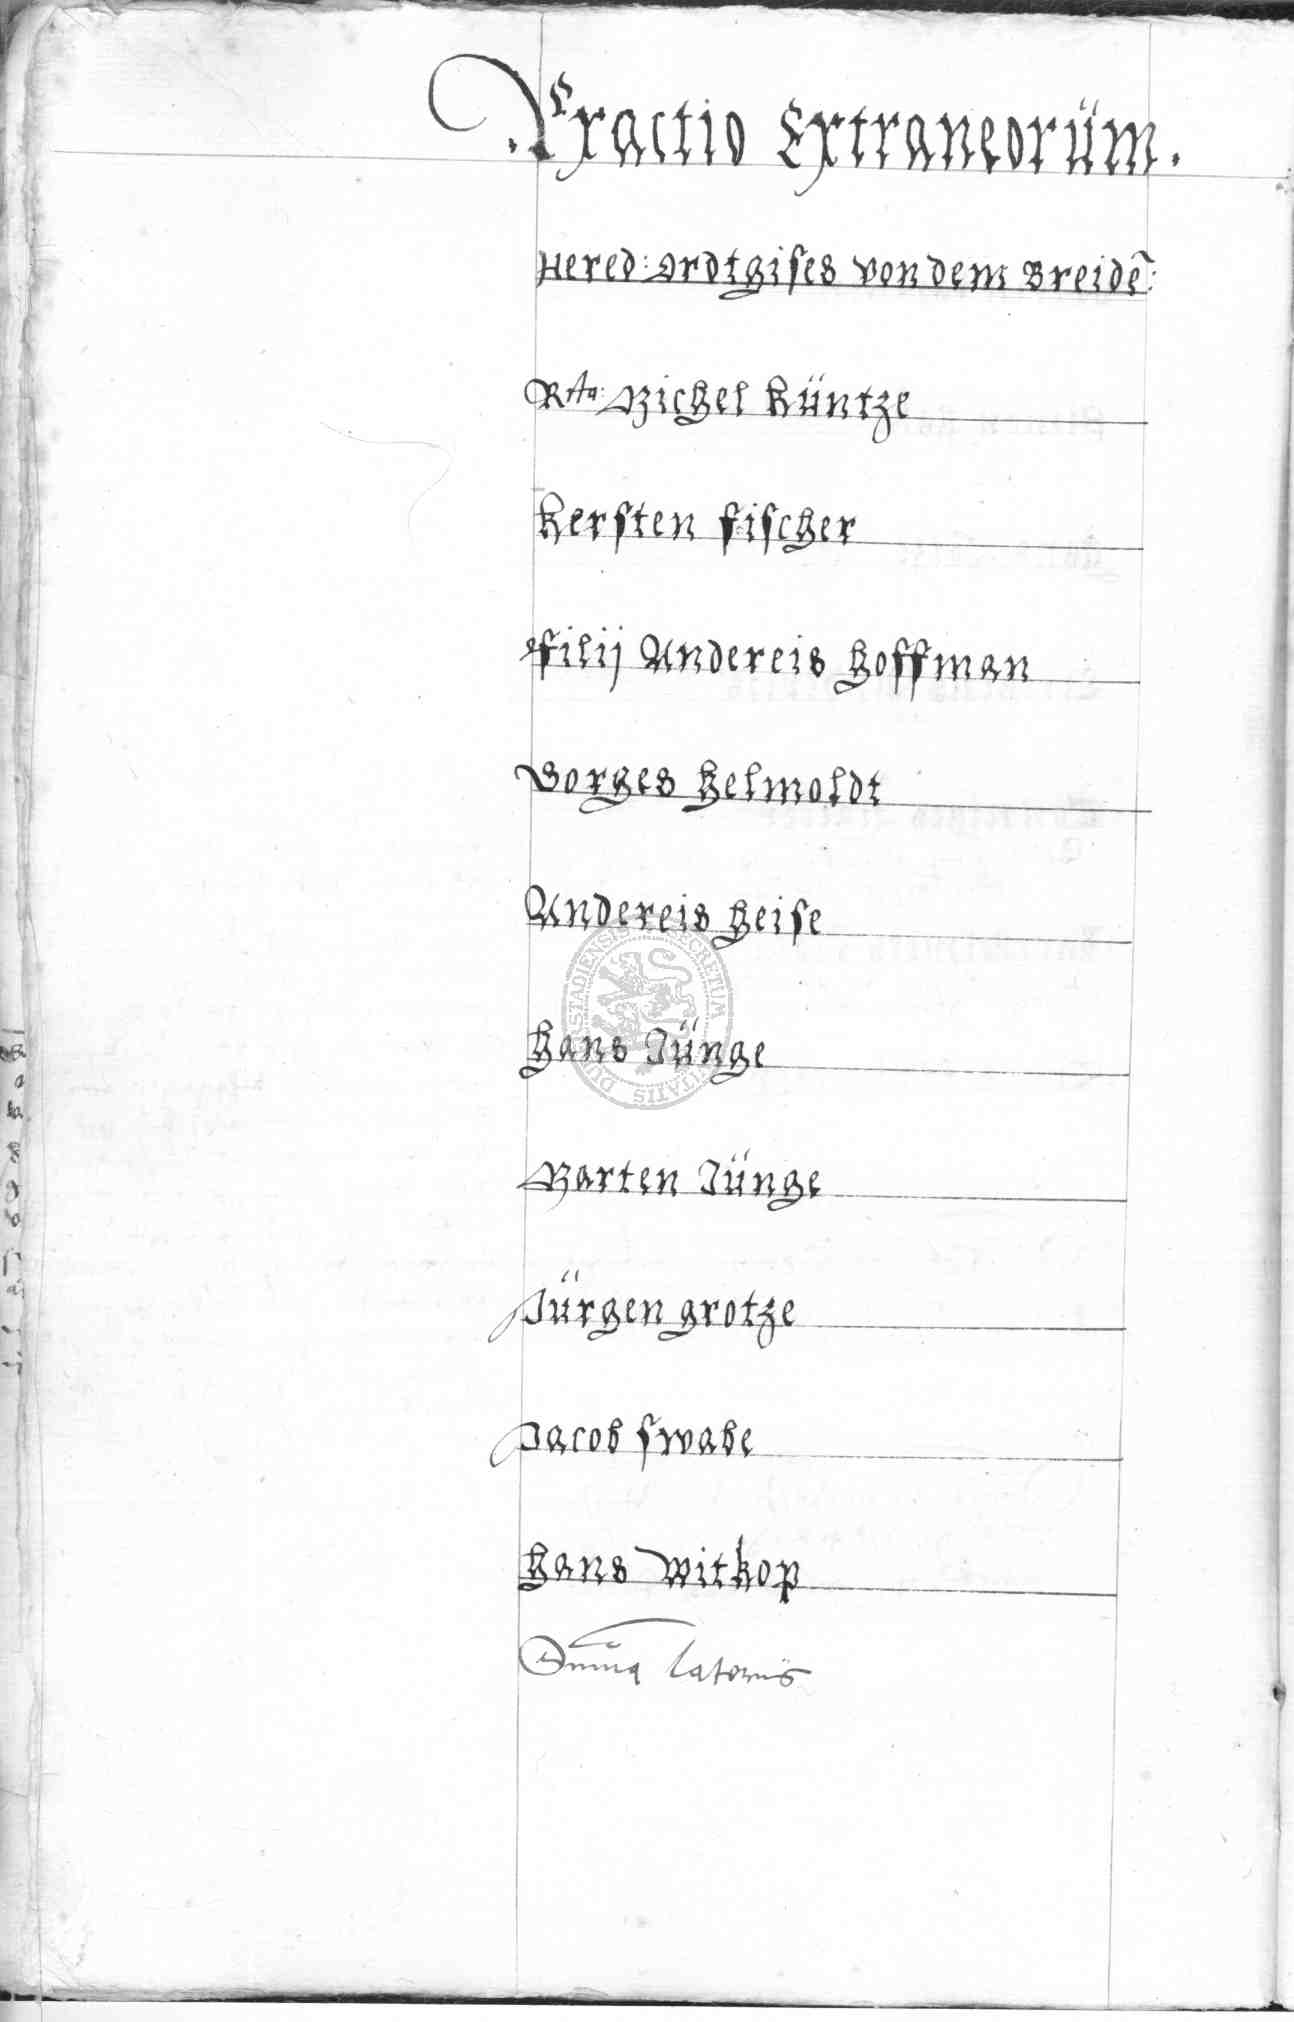 Exactio Extraneorüm.
Hered: Ordtgises von dem Breidẽ:
Rta: Michel Küntze
Kersten fischer
filij Andereis Hoffman
Borges Helmoldt
Andereis Heise
Hans Jünge
Marten Jünge
Jürgen grotze
Jacob swabe
Hans Witkop
Suma Lateris